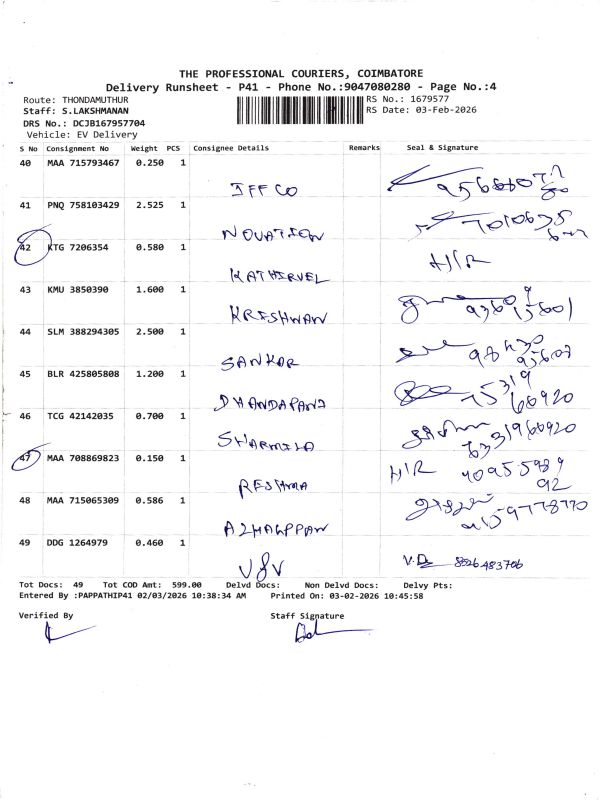 THE PROFESSIONAL COURIERS, COIMBATORE
Delivery Runsheet - P41 - Phone No.:9047080280 - Page No.:4
Route: THONDAMUTHUR RS No.: 1679577
Staff: S.LAKSHMANAN RS Date: 03-Feb-2026
DRS No.: DCJB167957704
Vehicle: EV Delivery
S No Consignment No Weight PCS Consignee Details Remarks Seal & Signature
40 MAA 715793467 0.250 1
IFFCO
41 PNQ 758103429 2.525 1
NOVATION
42 KTG 7206354 0.580 1 H/R
KATHIRVEL
43 KMU 3850390 1.600 1
KRISHWAN
44 SLM 388294305 2.500 1
SANKAR
45 BLR 425805808 1.200 1
DHANDAPANI
46 TCG 42142035 0.700 1
SHARMILA
47 MAA 708869823 0.150 1 H/R
RESHMA 92
48 MAA 715065309 0.586 1
AZHAGPPAN 9159778770
49 DDG 1264979 0.460 1
V&V
Tot Docs: 49 Tot COD Amt: 599.00 Delvd Docs: Non Delvd Docs: Delvy Pts:
Entered By :PAPPATHIP41 02/03/2026 10:38:34 AM Printed On: 03-02-2026 10:45:58
Verified By Staff Signature